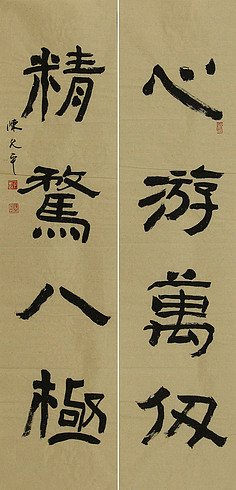 心游萬仞
精騖八極
陳文年